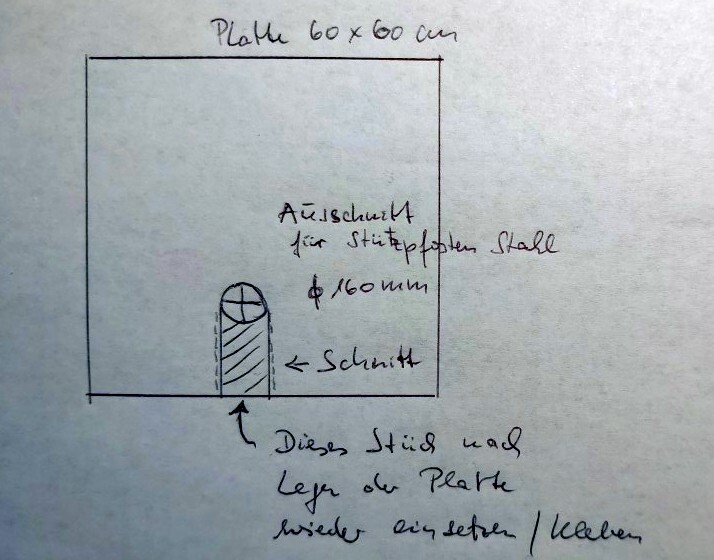 Platte 60 x 60 cm
Ausschnitt
für Stützpfosten Stahl
ϕ 160mm
← Schnitt
Dieses Stück nach
Legen der Platte
wieder einsetzen / kleben